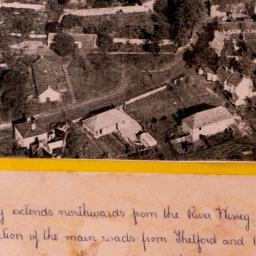 y extends northwards from the River Wissey
ction of the main roads from Thetford and